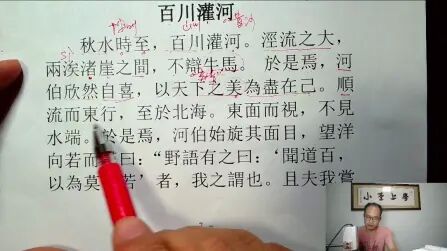 百川灌河
秋水時至，百川灌河。涇流之大，
兩涘渚崖之間，不辯牛馬。於是焉，河
伯欣然自喜，以天下之美為盡在己。順
流而東行，至於北海。東面而視，不見
水端。於是焉，河伯始旋其面目，望洋
向若而　曰：“野語有之曰：‘聞道百，
以為莫　若’者，我之謂也。且夫我嘗